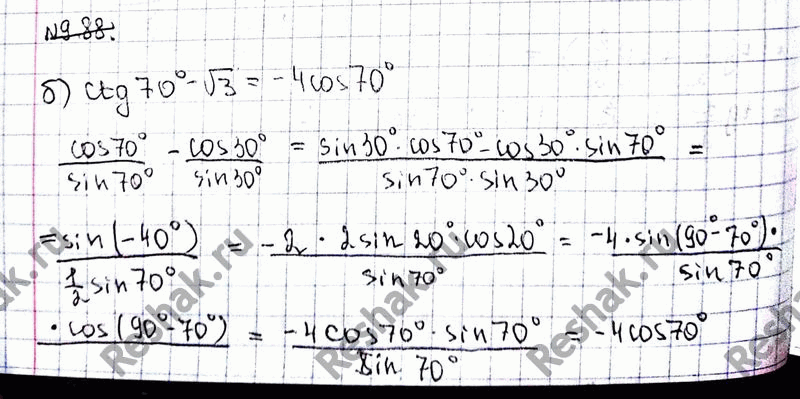 №9.88.
б) ctg70° - √3 = -4cos70°
cos70°/sin70° - cos30°/sin30° = (sin30°·cos70° - cos30°·sin70°)/(sin70°·sin30°) =
= sin(-40°)/(1/2 sin70°) = (-2·2sin20°·cos20°)/sin70° = (-4·sin(90°-70°)·)/sin70°
·cos(90°-70°) = (-4cos70°·sin70°)/sin70° = -4cos70°
Reshak.ru
Reshak.ru
Reshak.ru
Reshak.ru